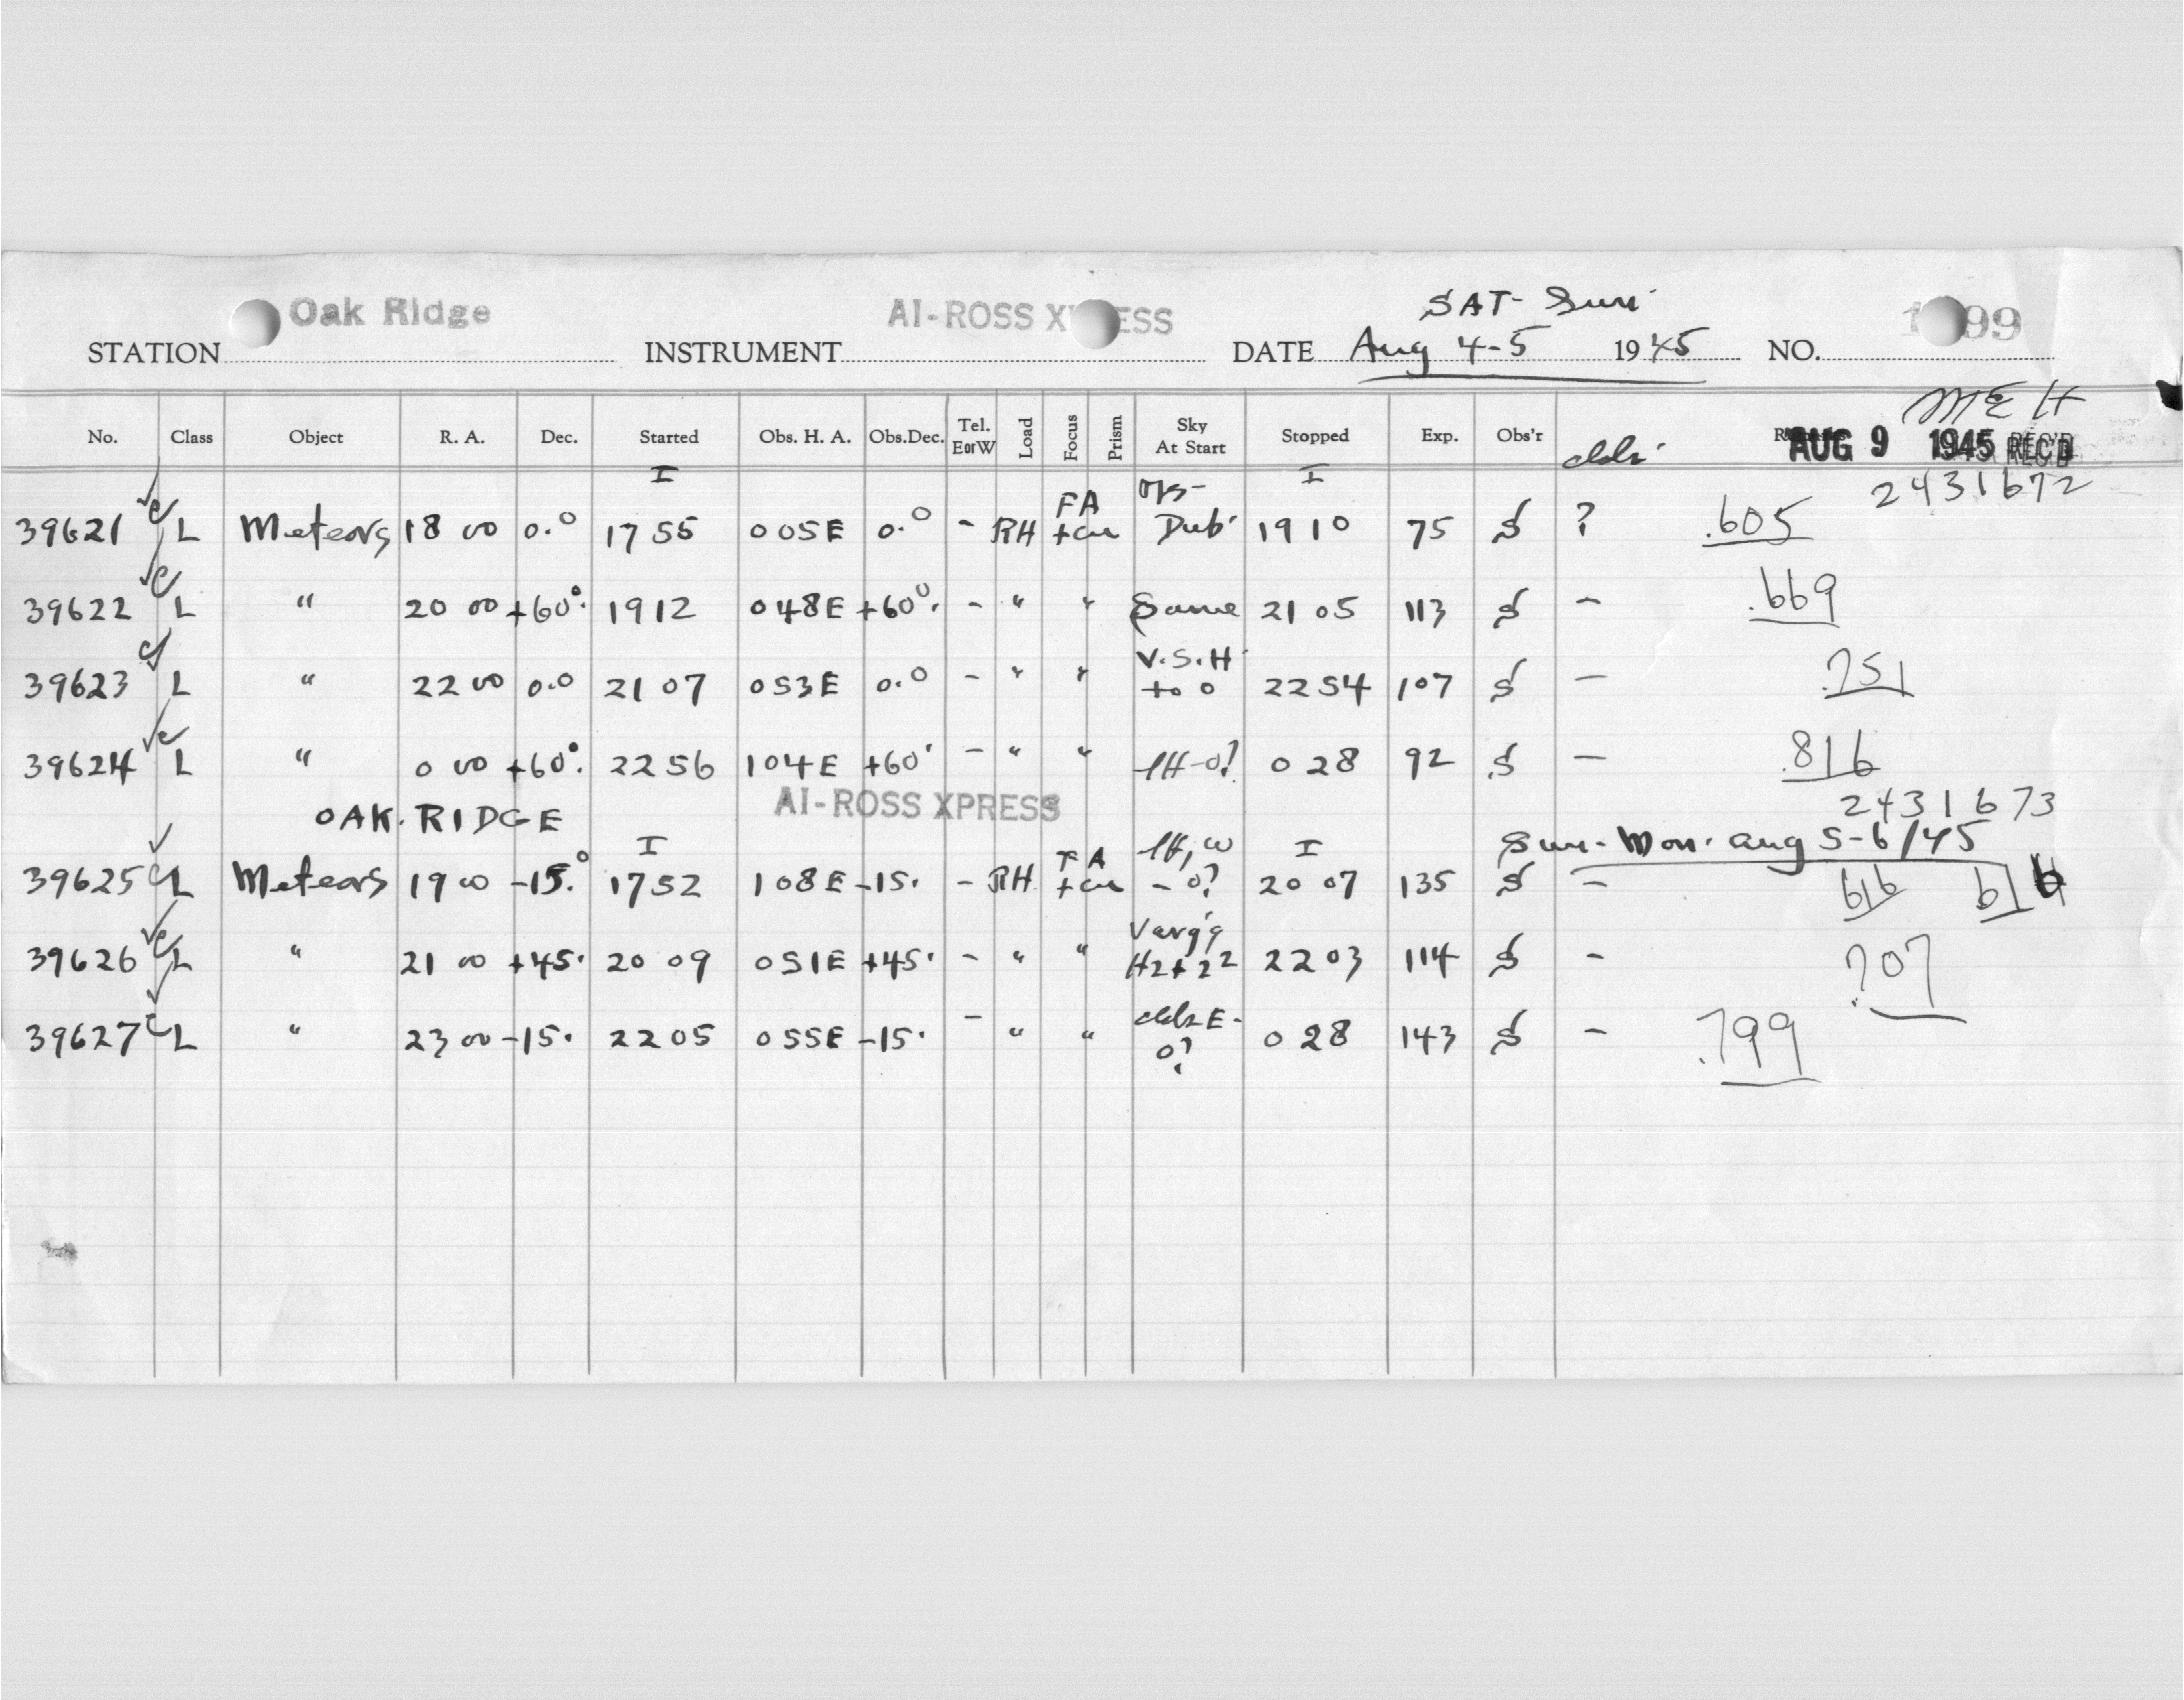 Oak Ridge AI-ROSS X ESS SAT- Sun. 99
STATION INSTRUMENT DATE Aug 4-5 1945 NO.
MEH
No. Class Object R. A. Dec. Started Obs. H. A. Obs.Dec. Tel. E or W Load Focus Prism Sky At Start Stopped Exp. Obs'r AUG 9 1945 REC'D
I I 2431672
39621 L Meteors 18 00 0.° 17 55 0 05E 0.° - RH FA + cu Dub. 19 10 75 S ? .605
39622 L " 20 00 +60°. 19 12 0 48E +60°. - " " Same 21 05 113 S - .669
39623 L " 22 00 0.0 21 07 0 53E 0.° - " " V.S.H. to 0 22 54 107 S - .751
39624 L " 0 00 +60°. 22 56 1 04E +60. - " " lH-0? 0 28 92 S - .816
OAK. RIDGE AI-ROSS XPRESS 2431673
I I Sun.-Mon. Aug 5-6/45
39625 L Meteors 19 00 -15.° 17 52 1 08E -15. - RH FA + cu lH, w - 0? 20 07 135 S - 616 616
39626 L " 21 00 +45. 20 09 0 51E +45. - " " Varg'g H2+22 22 03 114 S - .707
39627 L " 23 00 -15. 22 05 0 55E -15. - " " clds E. 0? 0 28 143 S - .799